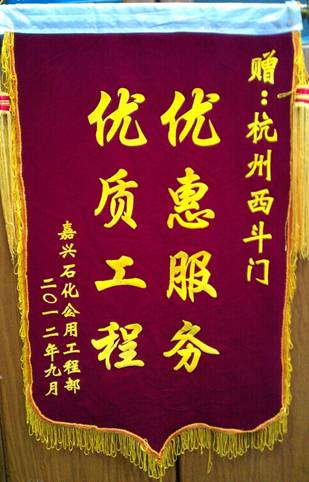 赠：杭州西斗门
优惠服务
优质工程
嘉兴石化公用工程部
二〇一二年九月